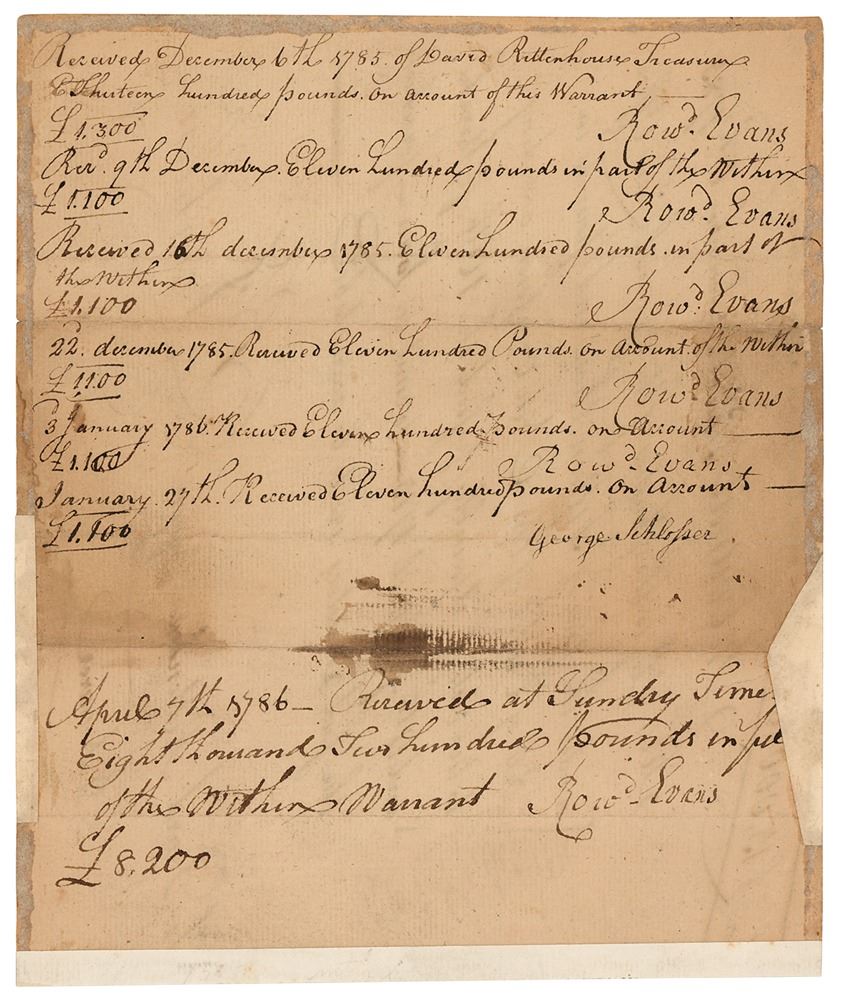 Received December 6th 1785. of David Rittenhouse Treasurer
Thirteen hundred pounds. on account of this Warrant
£1.300 Rowd. Evans
Recd. 9th December. Eleven hundred pounds in part of the Within
£1.100 Rowd. Evans
Received 16th december 1785. Eleven hundred pounds. in part of
the Within
£1.100 Rowd. Evans
22d. december 1785. Received Eleven hundred Pounds. on account. of the Within
£1100 Rowd. Evans
3d January 1786. Received Eleven hundred Pounds. on account
£1.100 Rowd. Evans
January. 27th. Received Eleven hundred pounds. on account
£1.100
George Schlosser.
April 7th 1786 — Received at Sundry Time
Eight thousand Two hundred pounds in ful
of the Within Warrant Rowd. Evans
£8.200